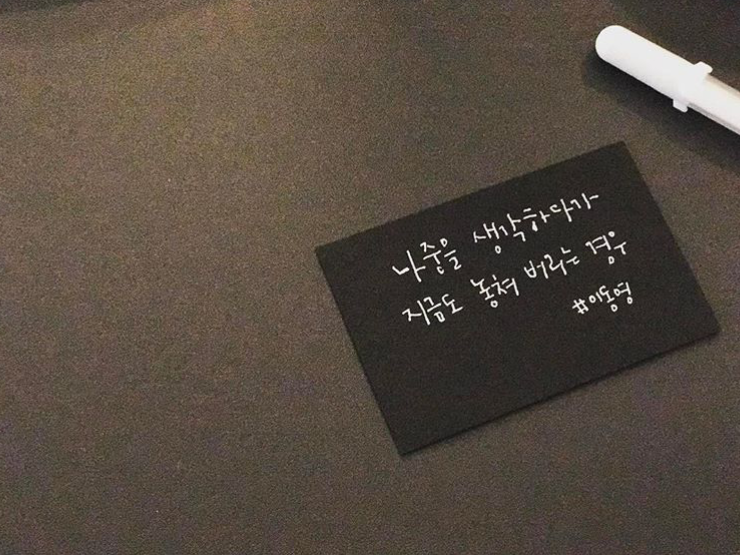 나중을 생각하다가
지금도 놓쳐 버리는 경우
#이동영